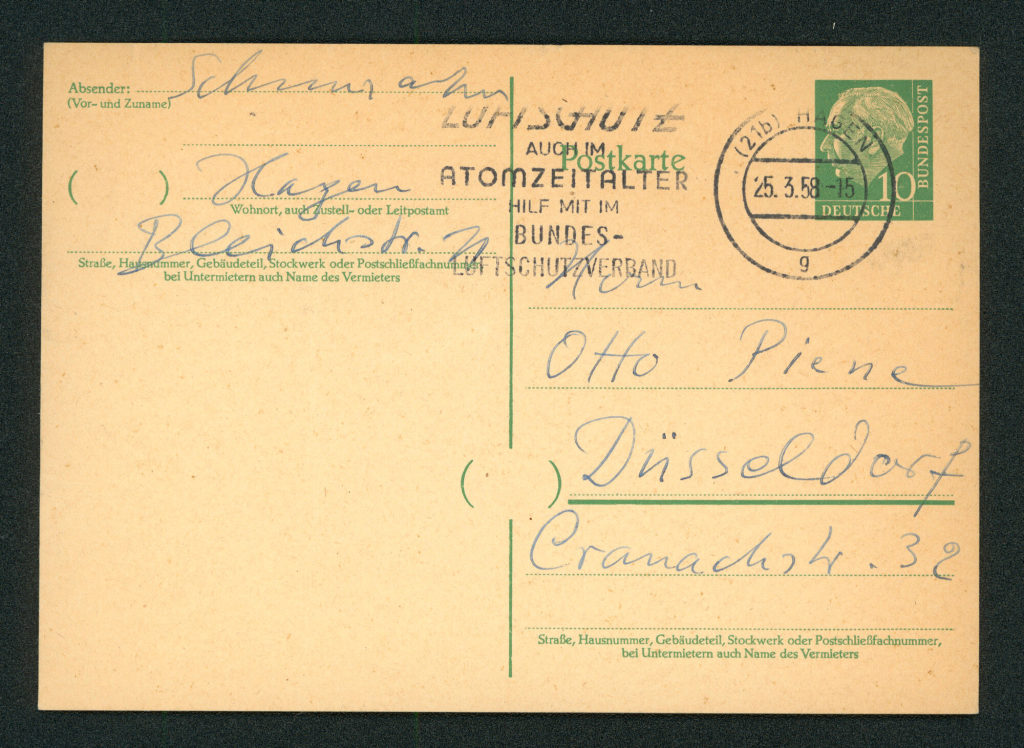 Absender:
(Vor- und Zuname)
( )
Hagen
Wohnort, auch Zustell- oder Leitpostamt
Bleichstr.
Straße, Hausnummer, Gebäudeteil, Stockwerk oder Postschließfachnummer
bei Untermietern auch Name des Vermieters
LUFTSCHUTZ
AUCH IM
ATOMZEITALTER
HILF MIT IM
BUNDES-
LUFTSCHUTZVERBAND
Postkarte
(21b) HAGEN
25. 3.58-15
g
10
DEUTSCHE
BUNDESPOST
Herrn
Otto Piene
Düsseldorf
( )
Cranachstr. 32
Straße, Hausnummer, Gebäudeteil, Stockwerk oder Postschließfachnummer,
bei Untermietern auch Name des Vermieters